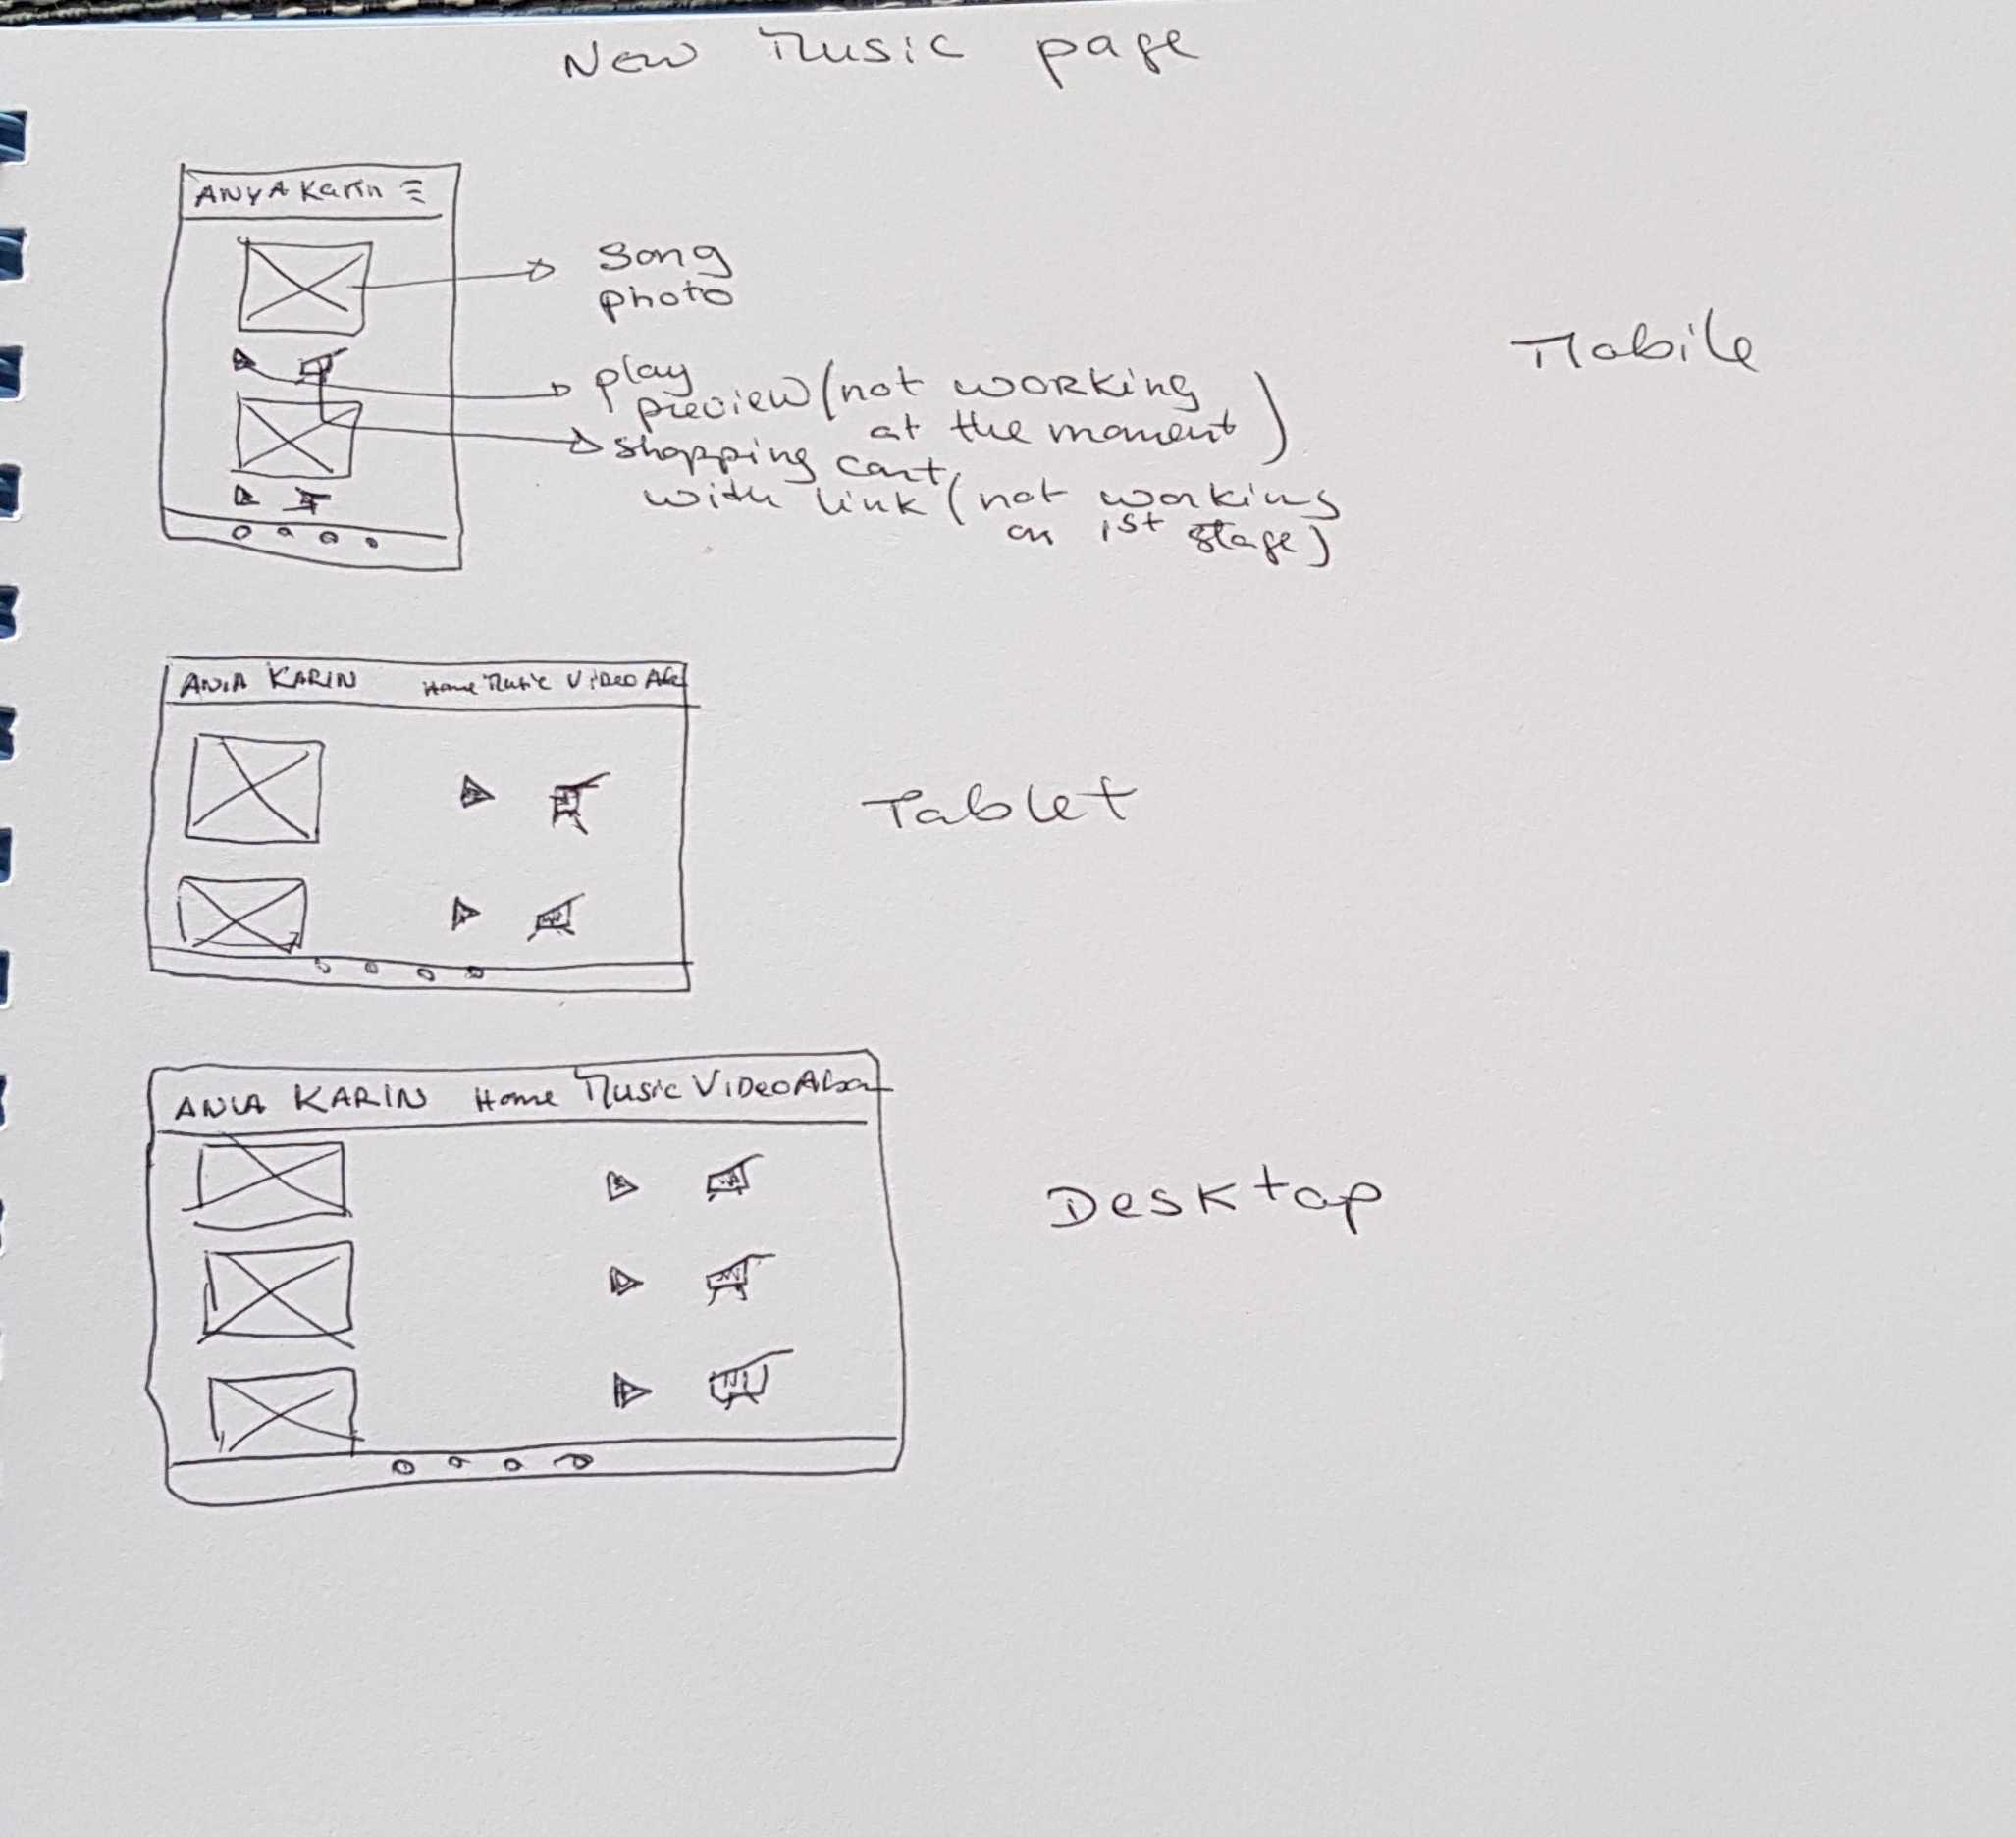 New Music page
ANYA Karin
Song
photo
Mobile
play
preview (not working
at the moment)
shopping cart
with link (not working
on 1st stage)
ANIA KARIN Home Music Video
Tablet
ANIA KARIN Home Music Video
Desktop